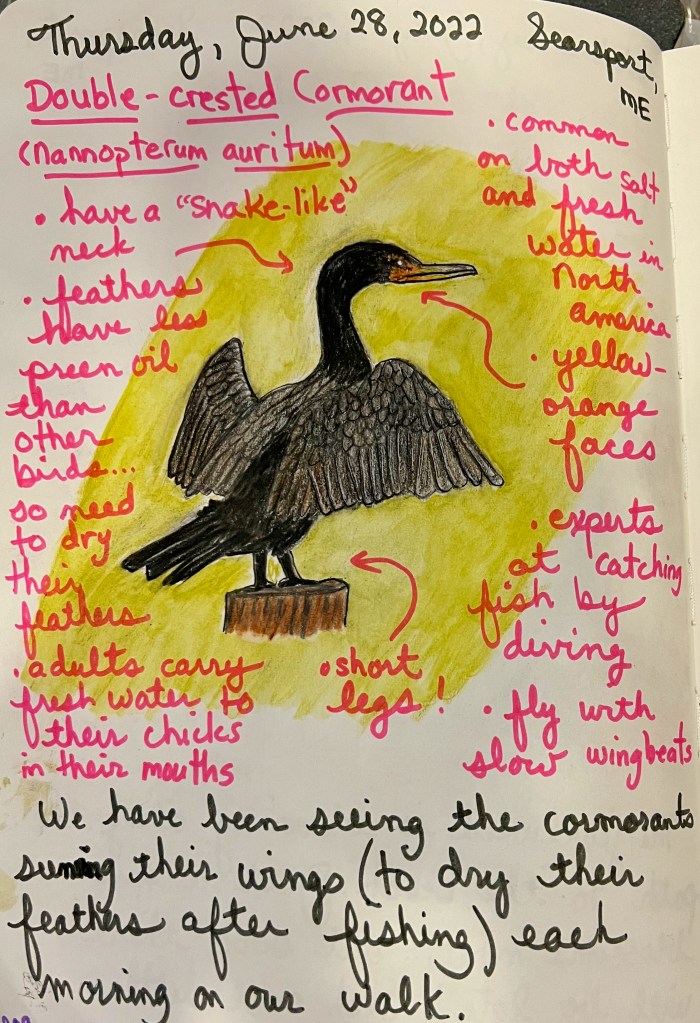 Thursday, June 28, 2022 Searsport,
ME
Double-crested Cormorant
(Nannopterum auritum)
• have a "snake-like"
neck
• feathers
have less
preen oil
than
other
birds...
so need
to dry
their
feathers
• adults carry
fresh water to
their chicks
in their mouths
• short
legs!
• common
on both salt
and fresh
water in
North
america
• yellow-
orange
faces
• experts
at catching
fish by
diving
• fly with
slow wingbeats
We have been seeing the cormorants
sunning their wings (to dry their
feathers after fishing) each
morning on our walk.